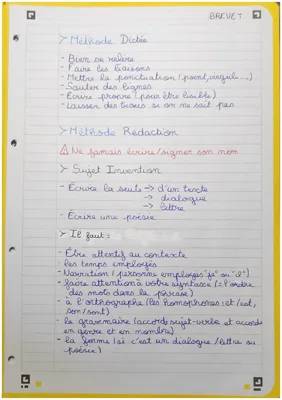 BREVET
> Méthode Dictée
- Bien se relire
- Faire les liaisons
- Mettre la ponctuation (point, virgul...)
- Sauter des lignes
- Écrire propre (pour être lisible)
- Laisser des trous si on ne sait pas
> Méthode Rédaction
⚠ Ne jamais écrire/signer son nom
> Sujet Invention
- Écrire la suite → d'un texte
→ dialogue
→ lettre
- Écrire une poésie
> Il faut :
- Être attentif au contexte
- les temps employés
- Narration (personne employés "je" ou "il")
- faire attention à votre syntaxe (= l'ordre
des mots dans la phrase)
- à l'orthographe (les homophones : et/est,
son/sont)
- la grammaire (accord sujet-verbe et accords
en genre et en nombre)
- la forme (si c'est un dialogue/lettre ou
poésie)